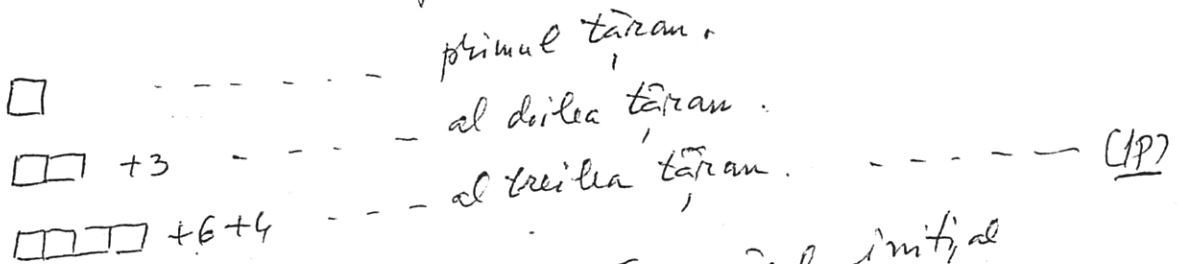 primul țăran.
+3 al doilea țăran.
+6+4 al treilea țăran. (1p)
inițial